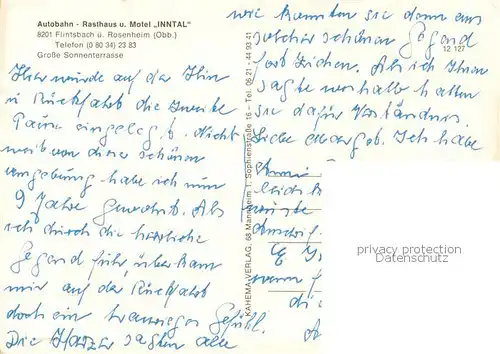 Autobahn - Rasthaus u. Motel „INNTAL"
8201 Flintsbach ü. Rosenheim (Obb.)
Telefon (0 80 34) 23 83
Große Sonnenterrasse
Hier wurde auf der Hin
u Rückfahrt die zweite
Pause eingelegt. Nicht
weit von dieser schönen
umgebung habe ich nun
9 Jahre gewohnt. Als
ich durch die herrliche
Gegend fuhr, überkam
mir auf der Rückfahrt
doch ein trauriges Gefühl.
Die sagten alle
wie konnten sie denn aus
solcher schönen Gegend
12 127
fort ziehen. Als ich Ihnen
sagte weshalb hatten
sie dafür Verständnis.
Liebe Ich habe
KAHEMA-VERLAG, 68 Mannheim 1, Sophienstraße 16 – Tel. 06 21 - 44 93 41
privacy protection
Datenschutz